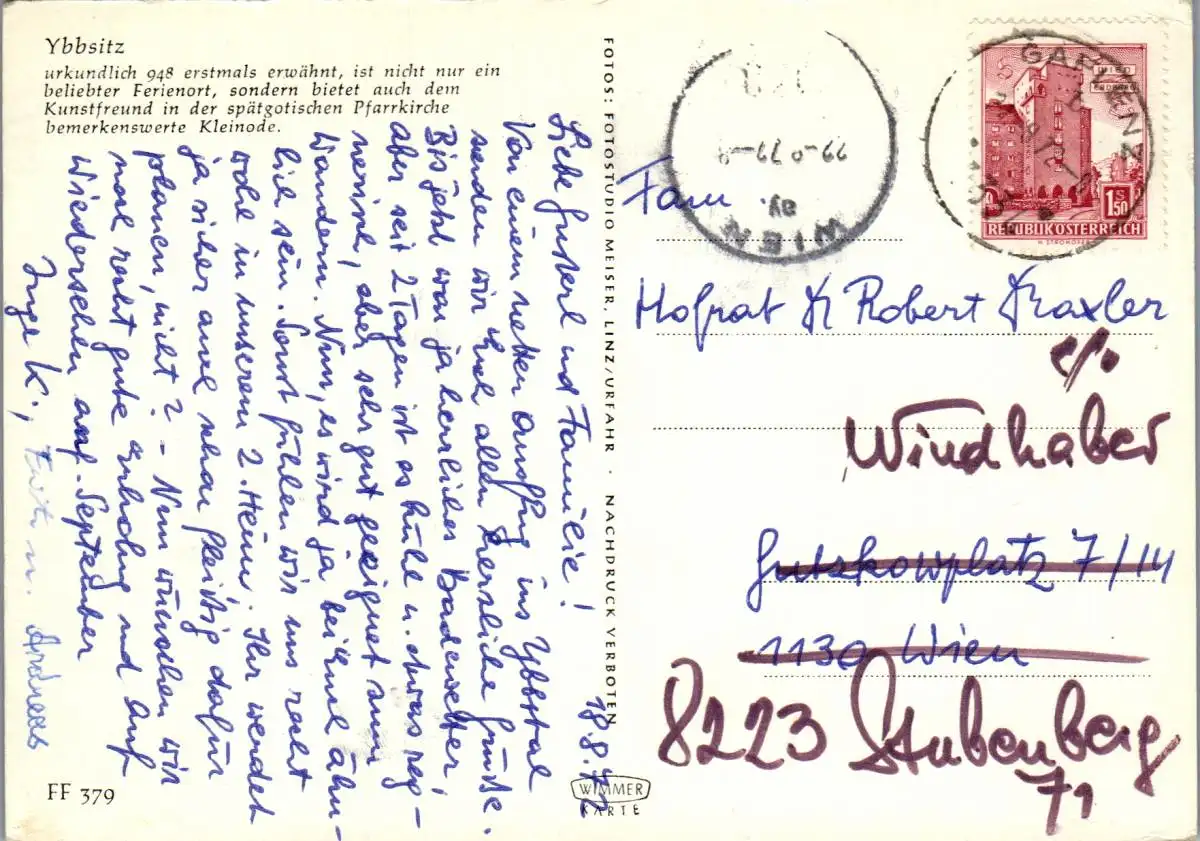 Ybbsitz
urkundlich 948 erstmals erwähnt, ist nicht nur ein
beliebter Ferienort, sondern bietet auch dem
Kunstfreund in der spätgotischen Pfarrkirche
bemerkenswerte Kleinode.
18.8.72
Liebe Gusterl und Familie!
Von einem netten Ausflug ins Ybbstal
senden wir Euch allen herzliche Grüße.
Bis jetzt war ja herrliches Badewetter,
aber seit 2 Tagen ist es kühl u. etwas reg-
nerisch, aber sehr gut geeignet zum
Wandern. Nun, es wird ja bei Euch ähn-
lich sein. Sonst fühlen wir uns recht
wohl in unserem 2. Heim. Ihr werdet
ja sicher auch schon fleißig dafür
planen, nicht? – Nun wünschen wir
noch recht gute Erholung und auf
Wiedersehen auf September
Inge K., u. Andreas
FF 379
FOTOS: FOTOSTUDIO MEISER, LINZ/URFAHR · NACHDRUCK VERBOTEN
WIMMER
KARTE
WIEN
GAFLENZ
1S50
REPUBLIK ÖSTERREICH
Fam.
Hofrat Dr Robert Draxler
c/o
Windhaber
Gutzkowplatz 7/14
1130 Wien
8223 Stubenberg
71